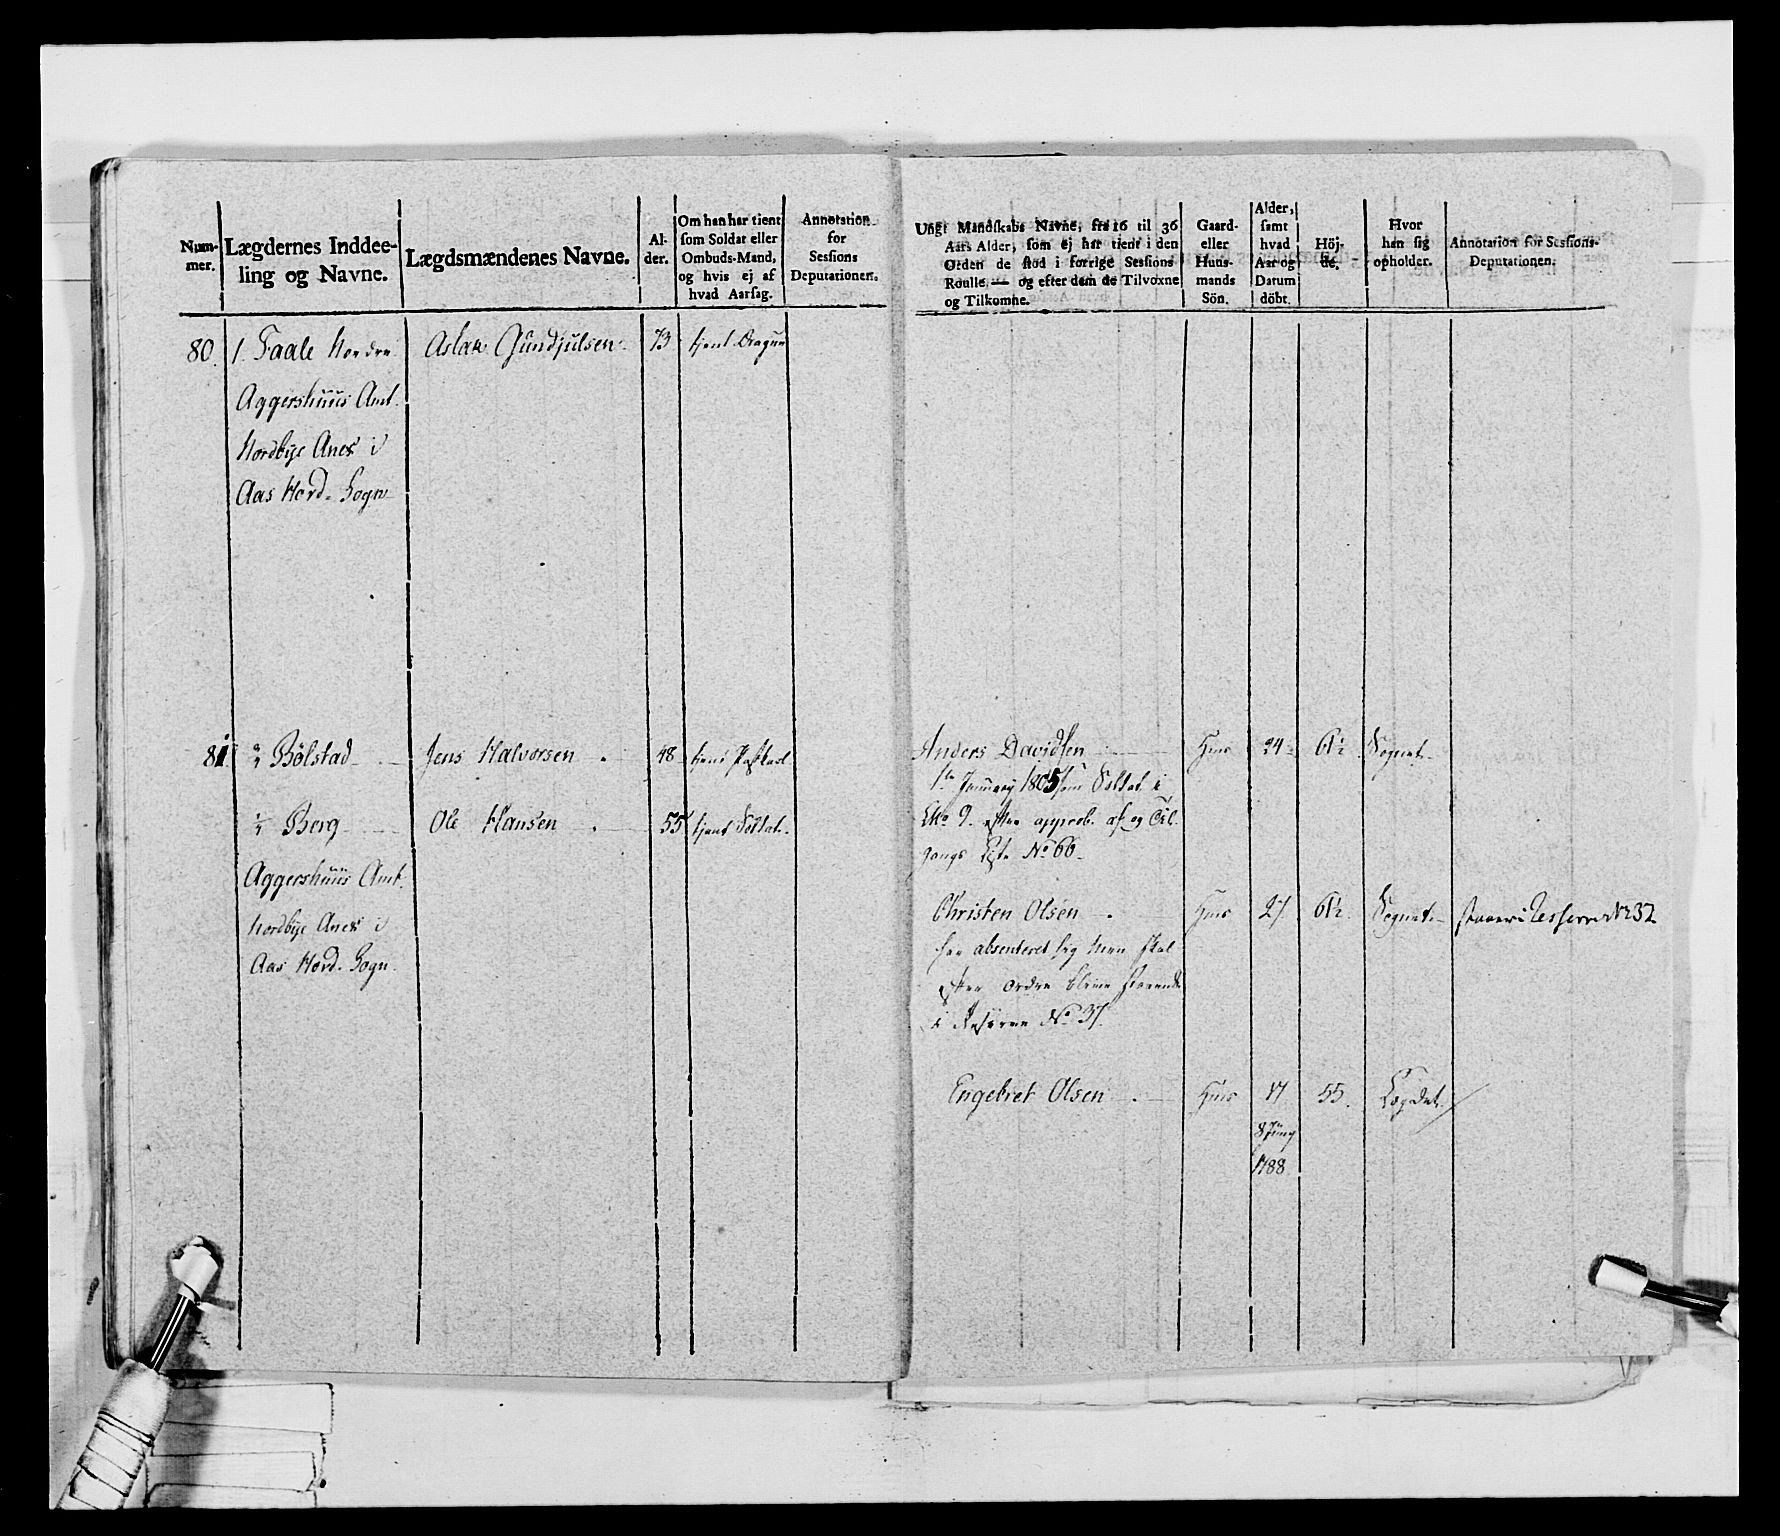 Num-
mer.
Lægdernes Inddee-
ling og Navne.
Lægdsmændenes Navne.
Al-
der.
Om han har tient
som Soldat eller
Ombuds-Mand,
og hvis ej af
hvad Aarsag.
Annotation
for
Sessions
Deputationen.
Ungt Mandskabs Navne, fra 16 til 36
Aars Alder, som ej har tient i den
Orden de stod i forrige Sessions
Roulle, — og efter dem de Tilvoxne
og Tilkomne.
Gaard-
eller
Huus-
mands
Sön.
Alder,
samt
hvad
Aar og
Datum
döbt.
Höj-
de.
Hvor
han sig
opholder.
Annotation for Sessions-
Deputationen.
80. 1. Faale Nordre Aslak Gundjulsen 73 tjent Dragun
Aggershuus Amt.
Nordbye Anex i
Aas Hovd. Sogn
81 ½ Bölstad Jens Halvorsen 48 tjent
½ Berg Ole Hansen 55 tjent Soldat
Aggershuus Amt.
Nordbye Anex i
Aas Hovd. Sogn.
Anders Davidsen Huus 24 61½ Sognet
1te January 1805 som Soldat i
No 9. efter approb. af og Til
gangs Liste No 66.
Christen Olsen Huus 27 61½ Sognet staaer i No 37
har absenteret sig men skal
efter ordre blive staaende
i Reserven No 37.
Engebret Olsen Huus 17 55. Lægdet
1788